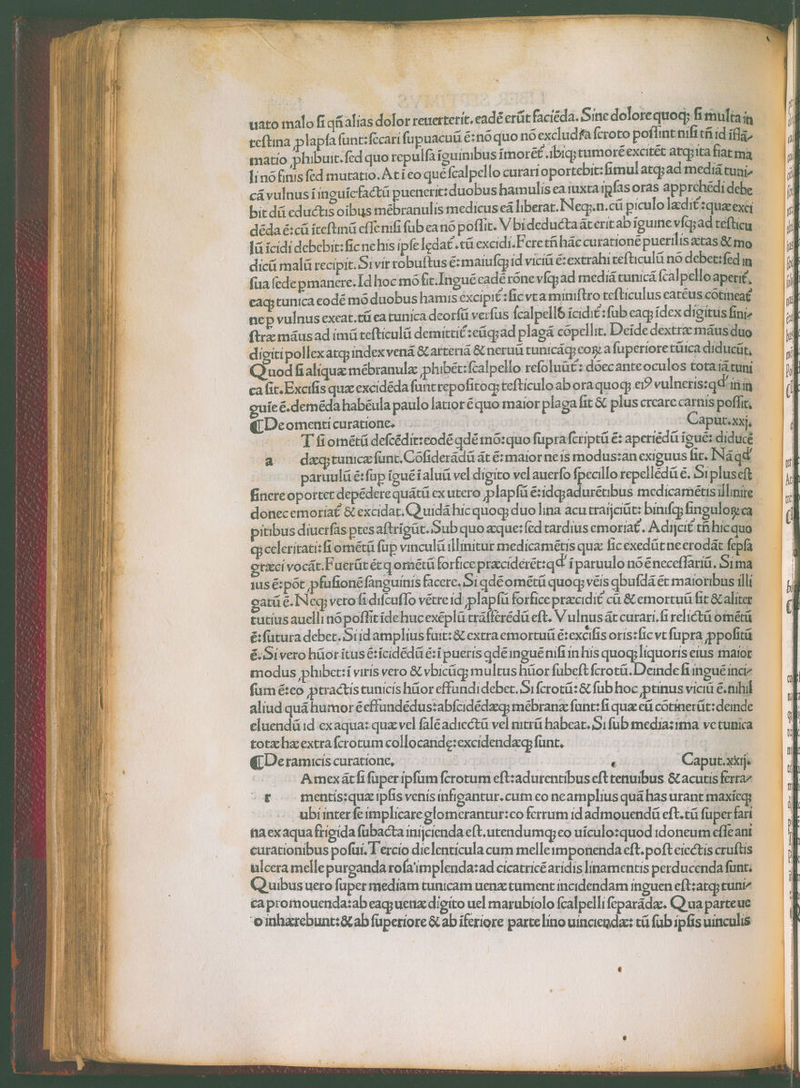 uato malo si qñ alias dolor reuerterit. eadē erūt faciēda. Sine dolore quoq; si multa in
testina ꝓlapsa sunt: secari supuacuū ē: nō quo nō excludi a scroto possint nisi tñ id iflā-
matio ꝓhibuit. sed quo repulsa iguinibus imorēt̃. ibiq; tumorē excitēt atq; ita fiat ma
li nō finis sed mutatio. At i eo quē scalpello curari oportebit: simul atq; ad mediā tuni-
cā vulnus i inguíe factū puenerit: duobus hamulis ea iuxta ipsas oras apprehēdi debe
bit dū eductis oibus mēbranulis medicus eā liberat. Neq;.n. cū piculo lædit̃: quæ exci
dēda ē: cū itestinū esse nisi sub ea nō possit. Vbi deducta āt erit ab iguine vsq; ad testicu
lū icidi debebit: sic ne his ipse lędat̃. tū excidi. Fere tñ hāc curationē puerilis ætas & mo
dicū malū recipit. Si vir robustus ē: maiusq; id viciū ē: extrahi testiculū nō debet: sed in
sua sede pmanere. Id hoc mō fit. Inguē eadē rōne vsq; ad mediā tunicā scalpello aperit̃.
eaq; tunica eodē mō duobus hamis excipit̃: sic vt a ministro testiculus eatēus cōtineat̃
ne p vulnus exeat. tū ea tunica deorsū versus scalpello icidit̃: sub eaq; idex digitus sini-
stræ māus ad imū testiculū demittit̃: eūq; ad plagā cōpellit. Deíde dextræ māus duo
digiti pollex atq; index venā & arteriā & neruū tunicāq; eoꝝ a superiore tūica diducūt.
Quod si aliquæ mēbranulæ ꝓhibēt: scalpello resoluūt̃: dōec ante oculos tota iā tuni
ca sit. Excisis quæ excidēda sunt repositoq; testiculo ab ora quoq; ei⁹ vulneris: qd̃ in in
guíe ē. demēda habēula paulo latior ē quo maior plaga sit & plus creare carnis possit.
¶ De omenti curatione. Caput. xxj.
a T si omētū descēdit: eodē qdē mō: quo supra scriptū ē: aperiēdū iguē: diducē
dæq; tunicæ sunt. Cōsiderādū āt ē: maior ne is modus: an exiguus sit. Nā qd̃
paruulū ē: sup iguē i aluū vel digito vel auerso specillo repellēdū ē. Si plus est
sinere oportet depēdere quātū ex utero ꝓlapsū ē: idq; adurētibus medicamētis illinire
donec emoriat̃ & excidat. Quidā hic quoq; duo lina acu traijciūt: binisq; singuloꝝ ca
pitibus diuersas ptes astrigūt. Sub quo æque: sed tardius emoriat̃. Adijcit̃ tñ hic quo
q; celeritati: si omētū sup vinculū illinitur medicamētis quæ sic exedūt ne erodāt sepsa
græci vocāt. Fuerūt ēt q omētū forfice præciderēt: qd̃ i paruulo nō ē necessariū. Si ma
ius ē: pōt ꝓfusionē sanguinis facere. Si qdē omētū quoq; vēis qbusdā ēt maioribus illi
gatū ē. Neq; vero si discusso vētre id ꝓlapsū forfice præcidit̃ cū & emortuū sit & aliter
tutius auelli nō possit ide huc exēplū trāsferēdū est. Vulnus āt curari. si relictū omētū
ē: sutura debet. Si id amplius fuit: & extra emortuū ē: excisis oris: sic vt supra ꝓpositū
ē. Si vero hūor itus ē: icidēdū ē: i pueris qdē inguē nisi in his quoq; liquoris eius maior
modus ꝓhibet: i viris vero & vbicūq; multus hūor subest scrotū. Deinde si inguē inci-
sum ē: eo ꝓtractis tunicis hūor effundi debet. Si scrotū: & sub hoc ꝓtinus viciū ē. nihil
aliud quā humor ē effundēdus: abscidēdæq; mēbranæ sunt: si quæ eū cōtinerūt: deinde
eluendū id ex aqua: quæ vel salē adiectū vel nitrū habeat. Si sub media: ima ve tunica
totæ hæ extra scrotum collocandę: excidendæq; sunt.
¶ De ramicis curatione. Caput. xxij.
r Amex āt si super ipsum scrotum est: adurentibus est tenuibus & acutis ferra-
mentis: quæ ipsis venis infigantur. cum eo ne amplius quā has urant maxíeq;
ubi inter se implicare glomerantur: eo ferrum id admouendū est. tū super fari
na ex aqua frigida subacta inijcienda est. utendumq; eo uículo: quod idoneum esse ani
curationibus posui. Tercio die lenticula cum melle imponenda est. post eiectis crustis
ulcera melle purganda rosa implenda: ad cicatricē aridis linamentis perducenda sunt.
Quibus uero super mediam tunicam uenæ tument incidendam inguen est: atq; tuni-
ca promouenda: ab eaq; uenæ digito uel marubiolo scalpelli separādæ. Qua parte ue
o inhærebunt: & ab superiore & ab iferiore parte lino uinciendæ: tū sub ipsis uinculis